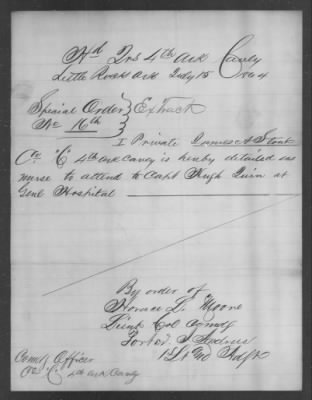 Hd Qrs 4th Ark Cavly
Little Rock Ark July 15 1864
Special Order } Extract
No 16th }
I Private James A Stout
Co "C" 4th Ark Cavey is hereby detailed as
nurse to attend to Capt Hugh Quin at
Genl Hospital
By order of
Horace L. Moore
Lieut Col Comdg
1st Lt and Adjt
Comdg Officer
Co "C" 4th Ark Cavey